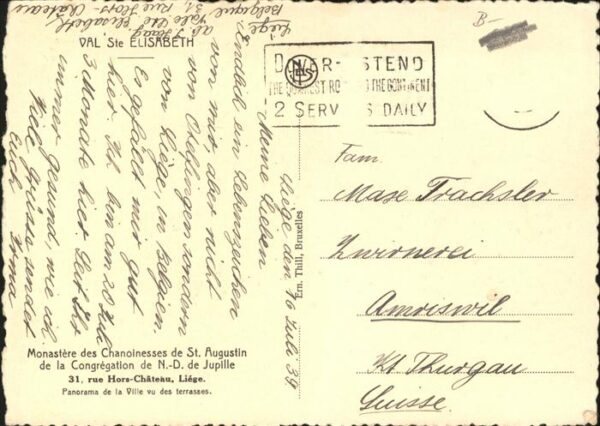 B-
VAL Ste ELISABETH
DOVER-OSTEND
THE QUICKEST ROUTE TO THE CONTINENT
2 SERVICES DAILY
Liège den 16 Juli 39
Meine Lieben
Endlich ein Lebenszeichen
von mir, aber nicht
von Oulfingen sondern
von Liège, in Belgien.
Es gefällt mir gut
hier. Ich bin am 20 Juli
3 Monate hier. Seit Ihr
immer gesund, wie ich
Viele Grüsse sendet
Euch Irma
Val Ste Elisabeth
31, Rue Hors-Château
Liège
Belgique
Ern. Thill, Bruxelles
Fam.
Mase Trachsler
Zwirnerei
Amriswil
Kt. Thurgau
Suisse.
Monastère des Chanoinesses de St. Augustin
de la Congrégation de N.-D. de Jupille
31, rue Hors-Château, Liége.
Panorama de la Ville vu des terrasses.